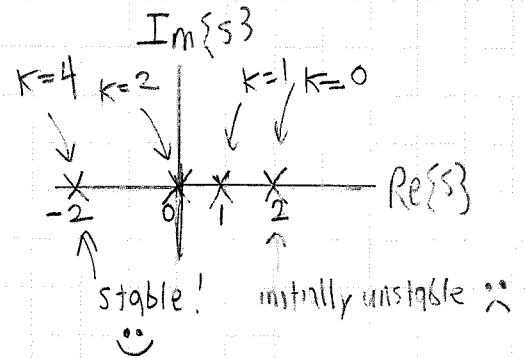 Im{s}
K=4 K=2 K=1 K=0
Re{s}
-2 0 1 2
stable! initially unstable